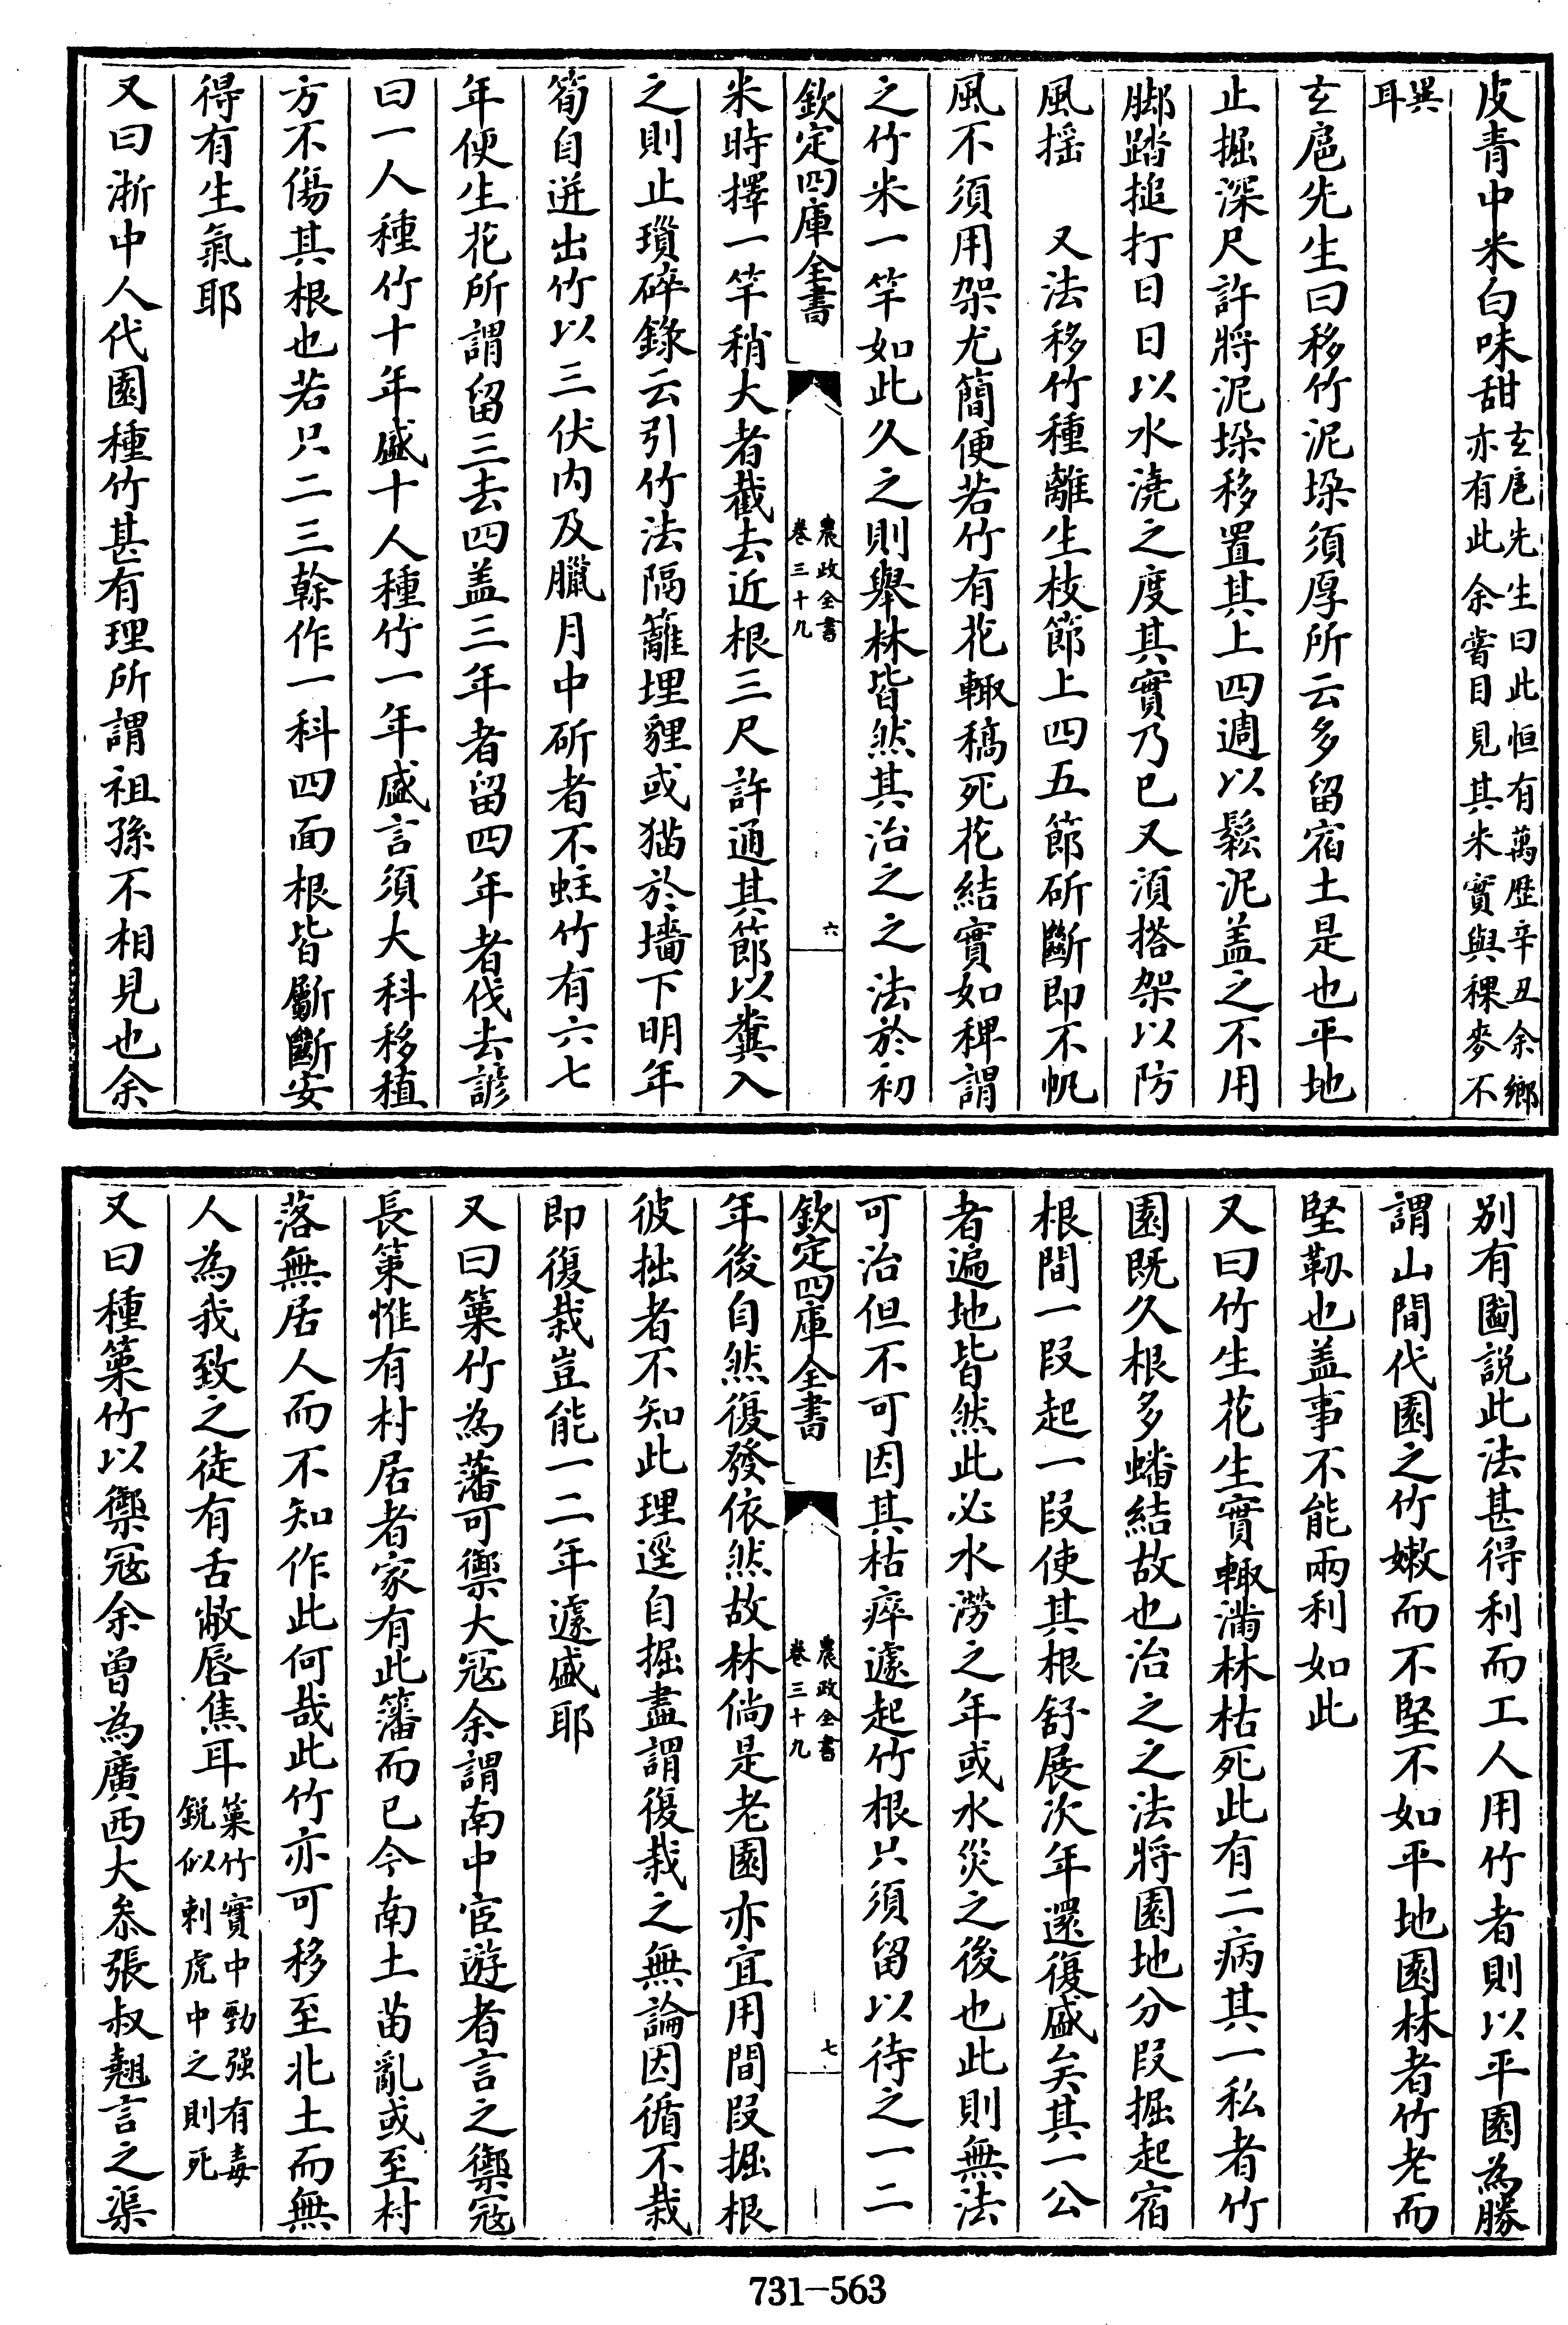 皮青中米白味甜玄扈先生曰此恒有萬歴辛丑余鄉亦有此余嘗目見其米實與稞麥不
異耳
玄扈先生曰移竹泥垜須厚所云多留宿土是也平地
止掘深尺許將泥垜移置其上四週以鬆泥盖之不用
脚踏搥打日日以水澆之度其實乃已又須搭架以防
風揺　又法移竹種離生枝節上四五節斫斷即不帆
風不須用架尤簡便若竹有花輙稿死花結實如稗謂
之竹米一竿如此久之則舉林皆然其治之之法於初
欽定四庫全書
農政全書
卷三十九
六
米時擇一竿稍大者截去近根三尺許通其節以糞入
之則止瑣碎錄云引竹法隔籬埋貍或猫於墻下明年
筍自迸出竹以三伏内及臘月中斫者不蛀竹有六七
年便生花所謂留三去四盖三年者留四年者伐去諺
曰一人種竹十年盛十人種竹一年盛言須大科移植
方不傷其根也若只二三榦作一科四面根皆斸斷安
得有生氣耶
又曰浙中人代園種竹甚有理所謂祖孫不相見也余
別有圖說此法甚得利而工人用竹者則以平園為勝
謂山間代園之竹嫩而不堅不如平地園林者竹老而
堅靭也盖事不能兩利如此
又曰竹生花生實輙滿林枯死此有二病其一私者竹
園既久根多蟠結故也治之之法將園地分段掘起宿
根間一段起一段使其根舒展次年還復盛矣其一公
者遍地皆然此必水澇之年或水災之後也此則無法
可治但不可因其枯瘁遽起竹根只須留以待之一二
欽定四庫全書
農政全書
卷三十九
七
年後自然復發依然故林倘是老園亦宜用間段掘根
彼拙者不知此理逕自掘盡謂復栽之無論因循不栽
即復栽豈能一二年遽盛耶
又曰䈽竹為藩可禦大冦余謂南中宦遊者言之禦冦
長䈽惟有村居者家有此籓而已今南土苗亂或至村
落無居人而不知作此何哉此竹亦可移至北土而無
人為我致之徒有舌敝唇焦耳䈽竹實中勁强有毒鋭似刺虎中之則死
又曰種䈽竹以禦冦余曾為廣西大叅張叔翹言之渠
731-563